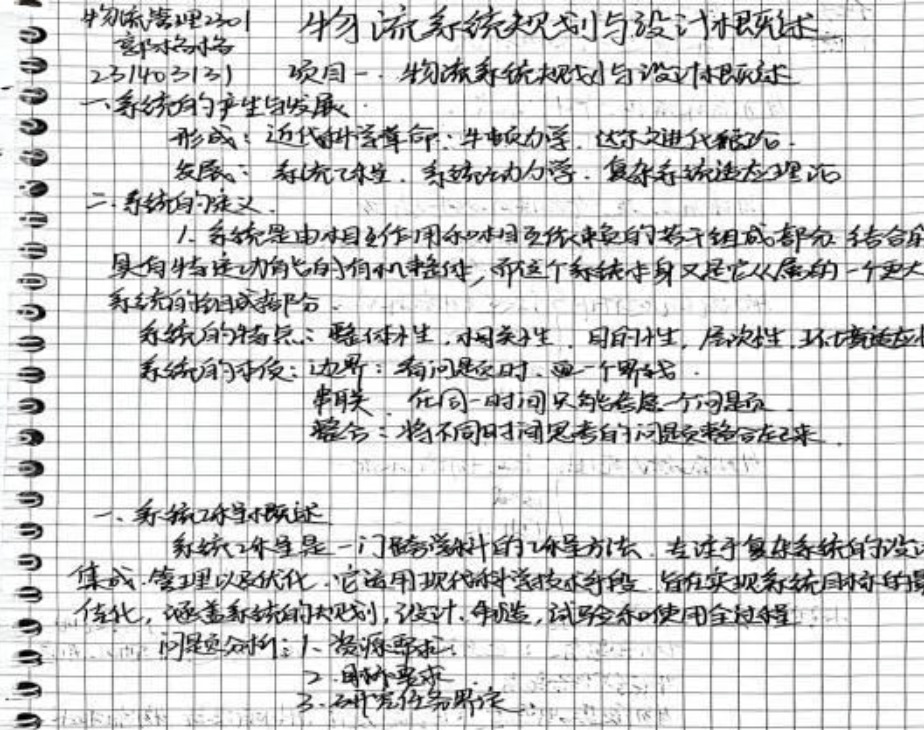 物流管理2301 物流系统规划与设计概述
郭格格
231403131 项目一. 物流系统规划与设计概述
一.系统的产生与发展.
形成: 近代科学革命: 牛顿力学. 达尔文进化理论.
发展: 系统工程. 系统动力学. 复杂系统适应理论
二.系统的定义.
1. 系统是由相互作用和相互依赖的若干组成部分 结合的
具有特定功能的有机整体, 而这个系统本身又是它从属的一个更大
系统的组成部分.
系统的特点: 整体性. 相关性. 目的性. 层次性. 环境适应
系统的: 边界: 有问题时. 画一个界线.
串联 在同一时间只能考虑一个问题.
整合: 将不同时间思考的问题整合起来.
一. 系统工程概述
系统工程是一门跨学科的工程方法. 专注于复杂系统的设
集成.管理以及优化. 它运用现代科学技术手段. 旨在实现系统目标的最
佳化, 涵盖系统的规划, 设计. 制造, 试验和使用全过程
问题分析: 1. 资源要求.
2. 目标要求
3. 研究任务界定.